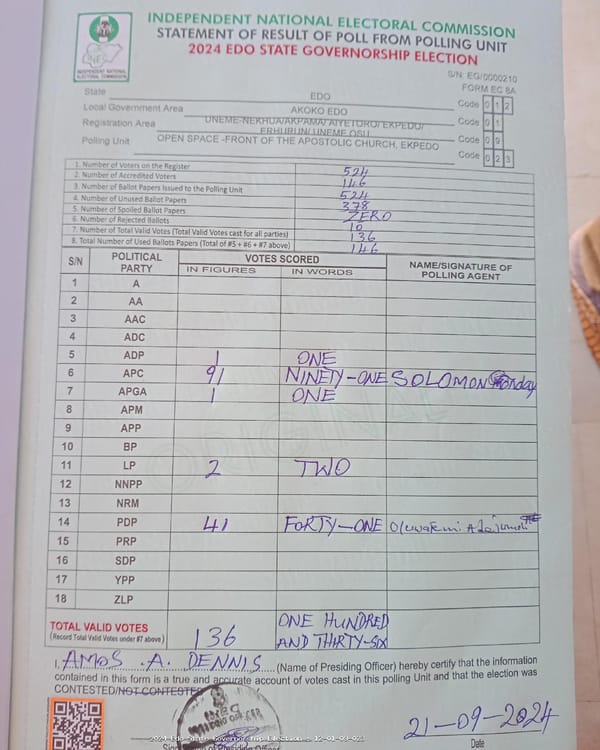 INDEPENDENT NATIONAL ELECTORAL COMMISSION
STATEMENT OF RESULT OF POLL FROM POLLING UNIT
2024 EDO STATE GOVERNORSHIP ELECTION
INDEPENDENT NATIONAL ELECTORAL COMMISSION
S/N: EG/0000210
FORM EC 8A
State EDO Code 0 1 2
Local Government Area AKOKO EDO Code 0 1
Registration Area UNEME-NEKHUA/AKPAMA/ AIYETORO/ EKPEDO/ ERHURUN/ UNEME OSU Code 0 9
Polling Unit OPEN SPACE -FRONT OF THE APOSTOLIC CHURCH, EKPEDO Code 0 2 3
1. Number of Voters on the Register 524
2. Number of Accredited Voters 146
3. Number of Ballot Papers Issued to the Polling Unit 524
4. Number of Unused Ballot Papers 378
5. Number of Spoiled Ballot Papers ZERO
6. Number of Rejected Ballots 10
7. Number of Total Valid Votes (Total Valid Votes cast for all parties) 136
8. Total Number of Used Ballots Papers (Total of #5 + #6 + #7 above) 146
S/N POLITICAL PARTY VOTES SCORED NAME/SIGNATURE OF POLLING AGENT
IN FIGURES IN WORDS
1 A
2 AA
3 AAC
4 ADC
5 ADP 1 ONE
6 APC 91 NINETY-ONE SOLOMON
7 APGA 1 ONE
8 APM
9 APP
10 BP
11 LP 2 TWO
12 NNPP
13 NRM
14 PDP 41 FORTY-ONE
15 PRP
16 SDP
17 YPP
18 ZLP
ORIGINAL
TOTAL VALID VOTES 136 ONE HUNDRED AND THIRTY-SIX
(Record Total Valid Votes under #7 above)
I, AMOS .A. DENNIS (Name of Presiding Officer) hereby certify that the information
contained in this form is a true and accurate account of votes cast in this polling Unit and that the election was
CONTESTED/NOT CONTESTED
21-09-2024
Date